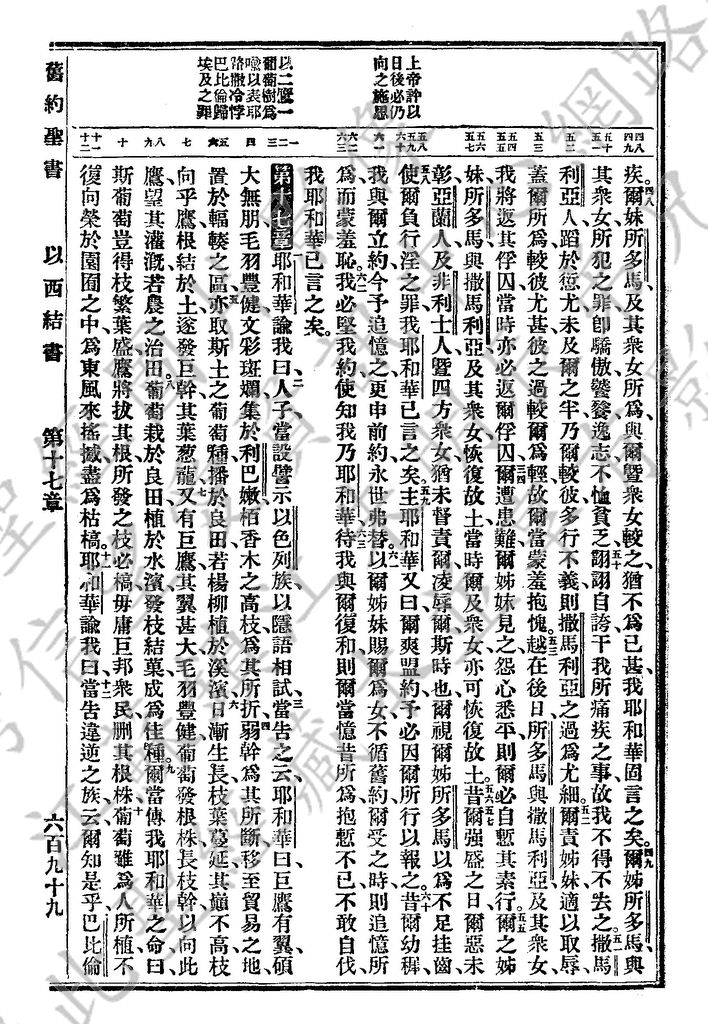 舊約聖書 以西結書 第十七章 六百九十九
上帝許以
日後必仍
向之施恩
以二鷹一
葡萄樹為
喻以表耶
路撒冷悖
巴比倫歸
埃及之罪
疾爾妹所多馬及其衆女所為與爾暨衆女較之猶不為已甚我耶和華固言之矣爾姊所多馬與
其衆女所犯之罪卽驕傲饕餮逸志不恤貧乏詡詡自誇干我所痛疾之事故我不得不去之撒馬
利亞人蹈於愆尤未及爾之半乃爾較彼多行不義則撒馬利亞之過為尤細爾責姊妹適以取辱
蓋爾所為較彼尤甚彼之過較爾為輕故爾當蒙羞抱愧越在後日所多馬與撒馬利亞及其衆女
我將返其俘囚當時亦必返爾俘囚爾遭患難爾姊妹見之怨心悉平則爾必自慙其素行爾之姊
妹所多馬與撒馬利亞及其衆女恢復故土當時爾及衆女亦可恢復故土昔爾强盛之日爾惡未
彰亞蘭人及非利士人暨四方衆女猶未督責爾凌辱爾斯時也爾視爾姊所多馬以為不足挂齒
使爾負行淫之罪我耶和華已言之矣主耶和華又曰爾爽盟約予必因爾所行以報之昔爾幼穉
我與爾立約今予追憶之更申前約永世弗替以爾姊妹賜爾為女不循舊約爾受之時則追憶所
為而蒙羞恥我必堅我約使知我乃耶和華待我與爾復和則爾當憶昔所為抱慙不已不敢自伐
我耶和華已言之矣
第十七章耶和華諭我曰人子當設譬示以色列族以隱語相試當告之云耶和華曰巨鷹有翼碩
大無朋毛羽豐健文彩斑斕集於利巴嫩栢香木之高枝為其所折弱幹為其所斷移至貿易之地
置於輻輳之區亦取斯土之葡萄種播於良田若楊柳植於溪濱日漸生長枝葉蔓延其巔不高枝
向乎鷹根結於土遂發巨幹其葉葱蘢又有巨鷹其翼甚大毛羽豐健葡萄發根株長枝幹以向此
鷹望其灌溉若農之治田葡萄栽於良田植於水濱發枝結菓成為佳種爾當傳我耶和華之命曰
斯葡萄豈得枝繁葉盛鷹將拔其根所發之枝必槁毋庸巨邦衆民刪其根株葡萄雖為人所植不
復向榮於園囿之中為東風來搖撼盡為枯槁耶和華諭我曰當告違逆之族云爾知是乎巴比倫